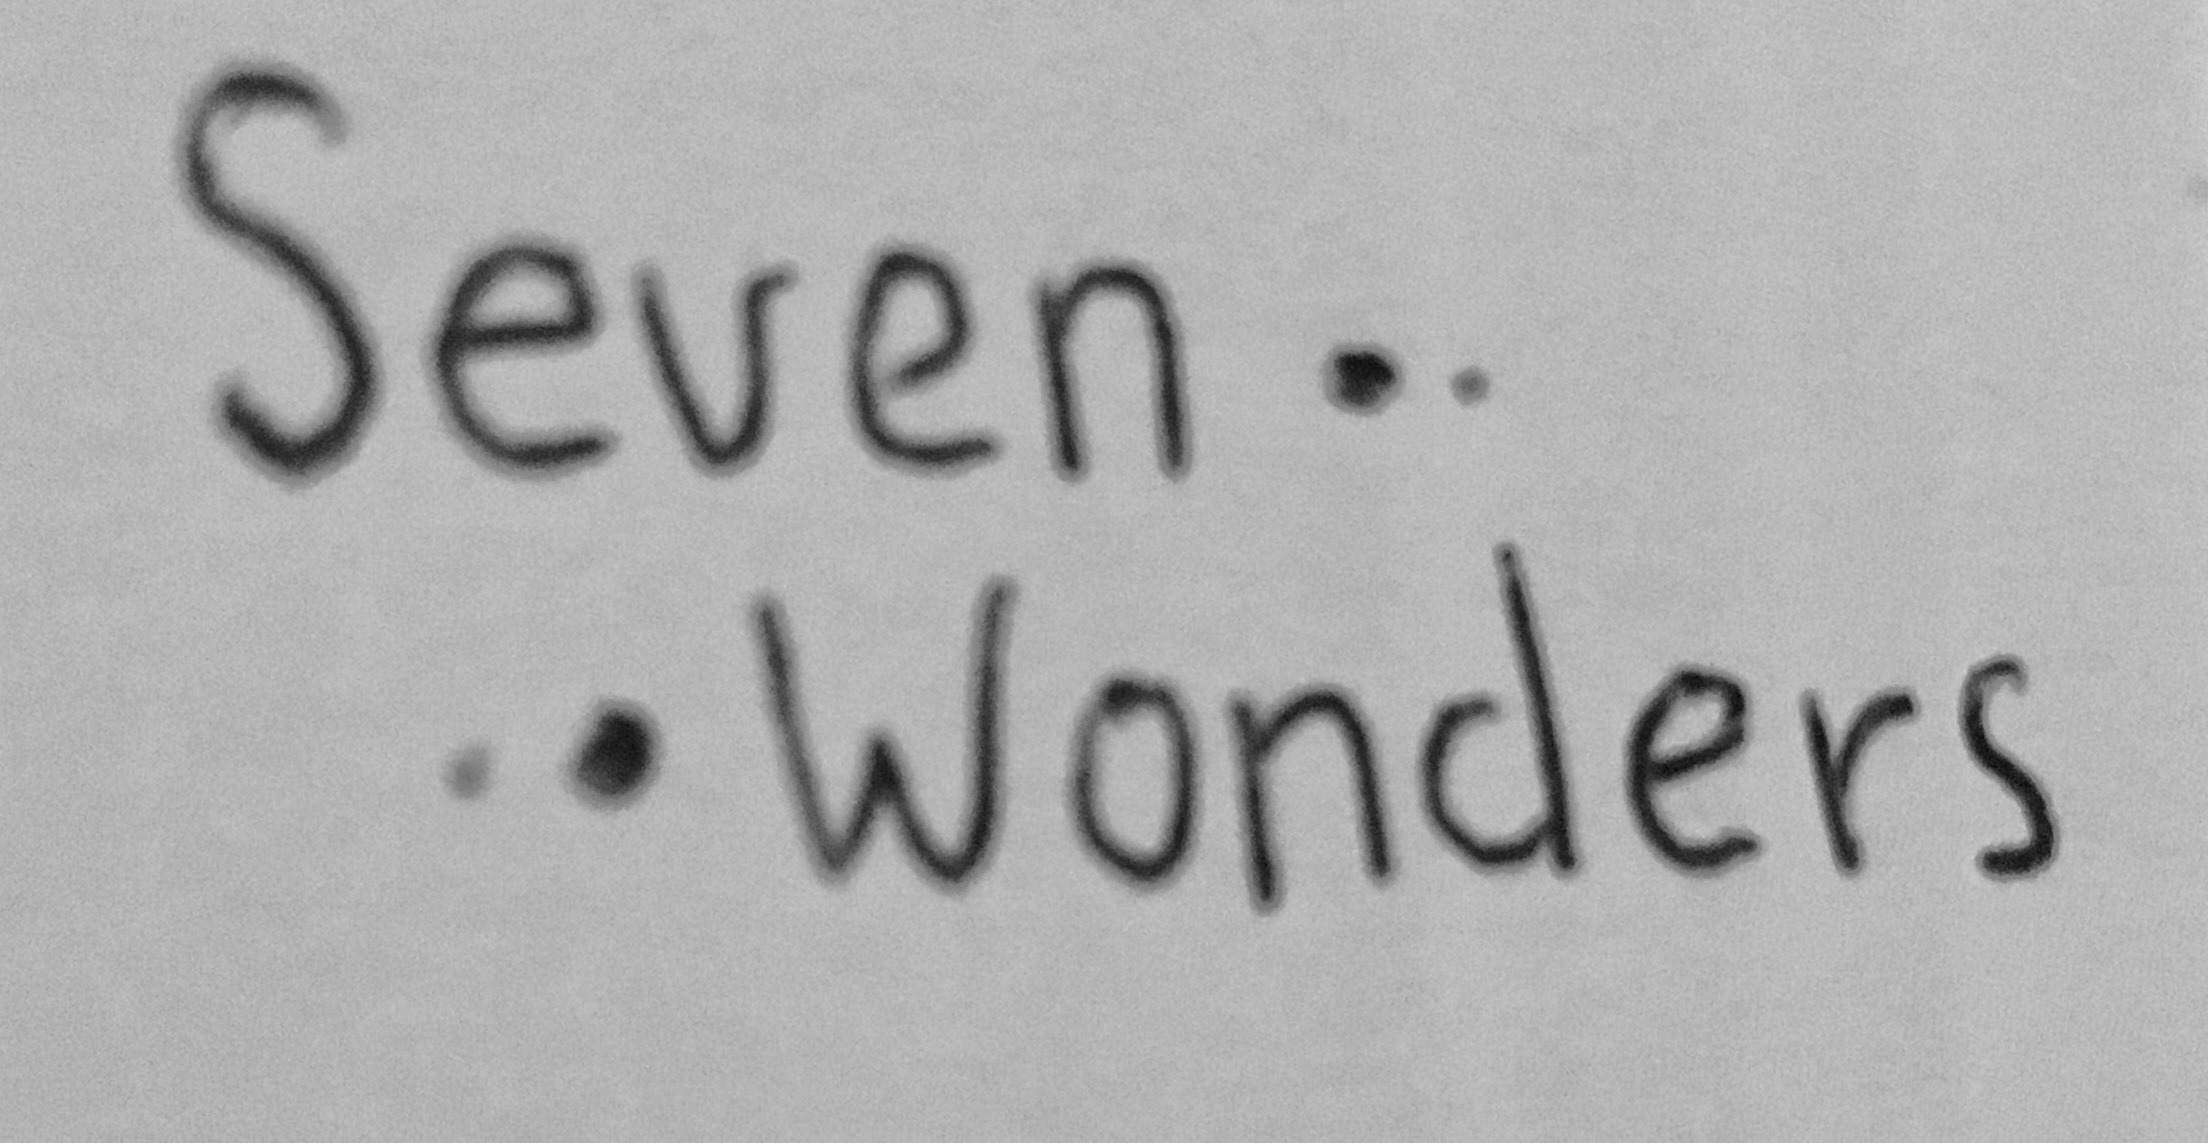 Seven ..
.. Wonders